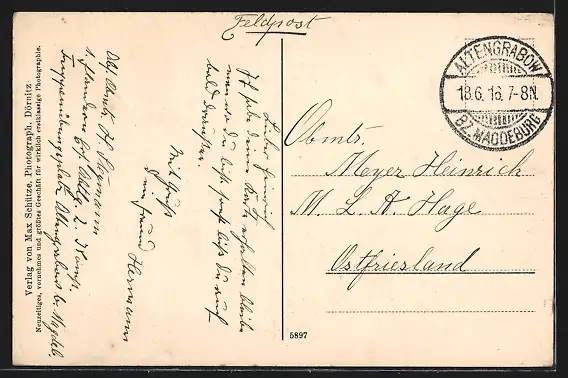 Feldpost
ALTENGRABOW
18.6.16. 7-8N.
BZ. MAGDEBURG
Obmts.
Meyer Heinrich
M. L. A. Hage
Ostfriesland
Lieber Heinrich
Ich habe deine Karte erhalten
du auf
bald
Mit Gruß
dein Freund Hermann
Abs. Obmts. H. Hermann
2. Komp.
Truppenübungsplatz Altengrabow b. Magdeb.
Verlag von Max Schütze, Photograph, Dörnitz
Neuzeitliges, vornehmes und größtes Geschäft für wirklich erstklassige Photographie.
5897